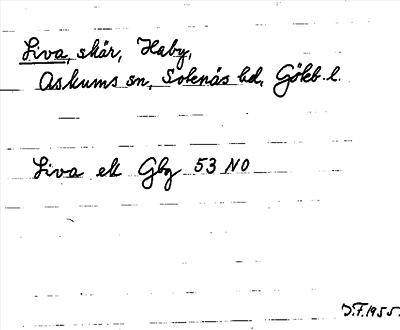 Liva, skär, Haby,
Askums sn, Sotenäs hd, Göteb. l.
Liva ek Gbg 53 NO
D.F. 1955.